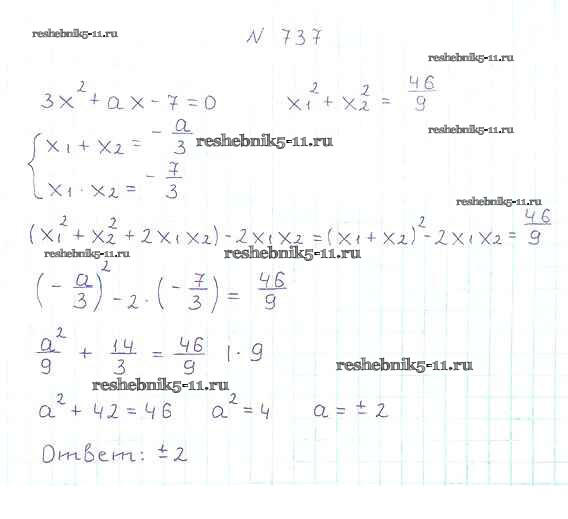 reshebnik5-11.ru
N 737
reshebnik5-11.ru
3x² + ax - 7 = 0 x₁² + x₂² = 46/9
reshebnik5-11.ru
x₁ + x₂ = - a/3
reshebnik5-11.ru
x₁ · x₂ = - 7/3
reshebnik5-11.ru
(x₁² + x₂² + 2x₁x₂) - 2x₁x₂ = (x₁ + x₂)² - 2x₁x₂ = 46/9
reshebnik5-11.ru reshebnik5-11.ru
(- a/3)² - 2 · (- 7/3) = 46/9
a²/9 + 14/3 = 46/9 | · 9
reshebnik5-11.ru
reshebnik5-11.ru
a² + 42 = 46 a² = 4 a = ± 2
Ответ: ± 2